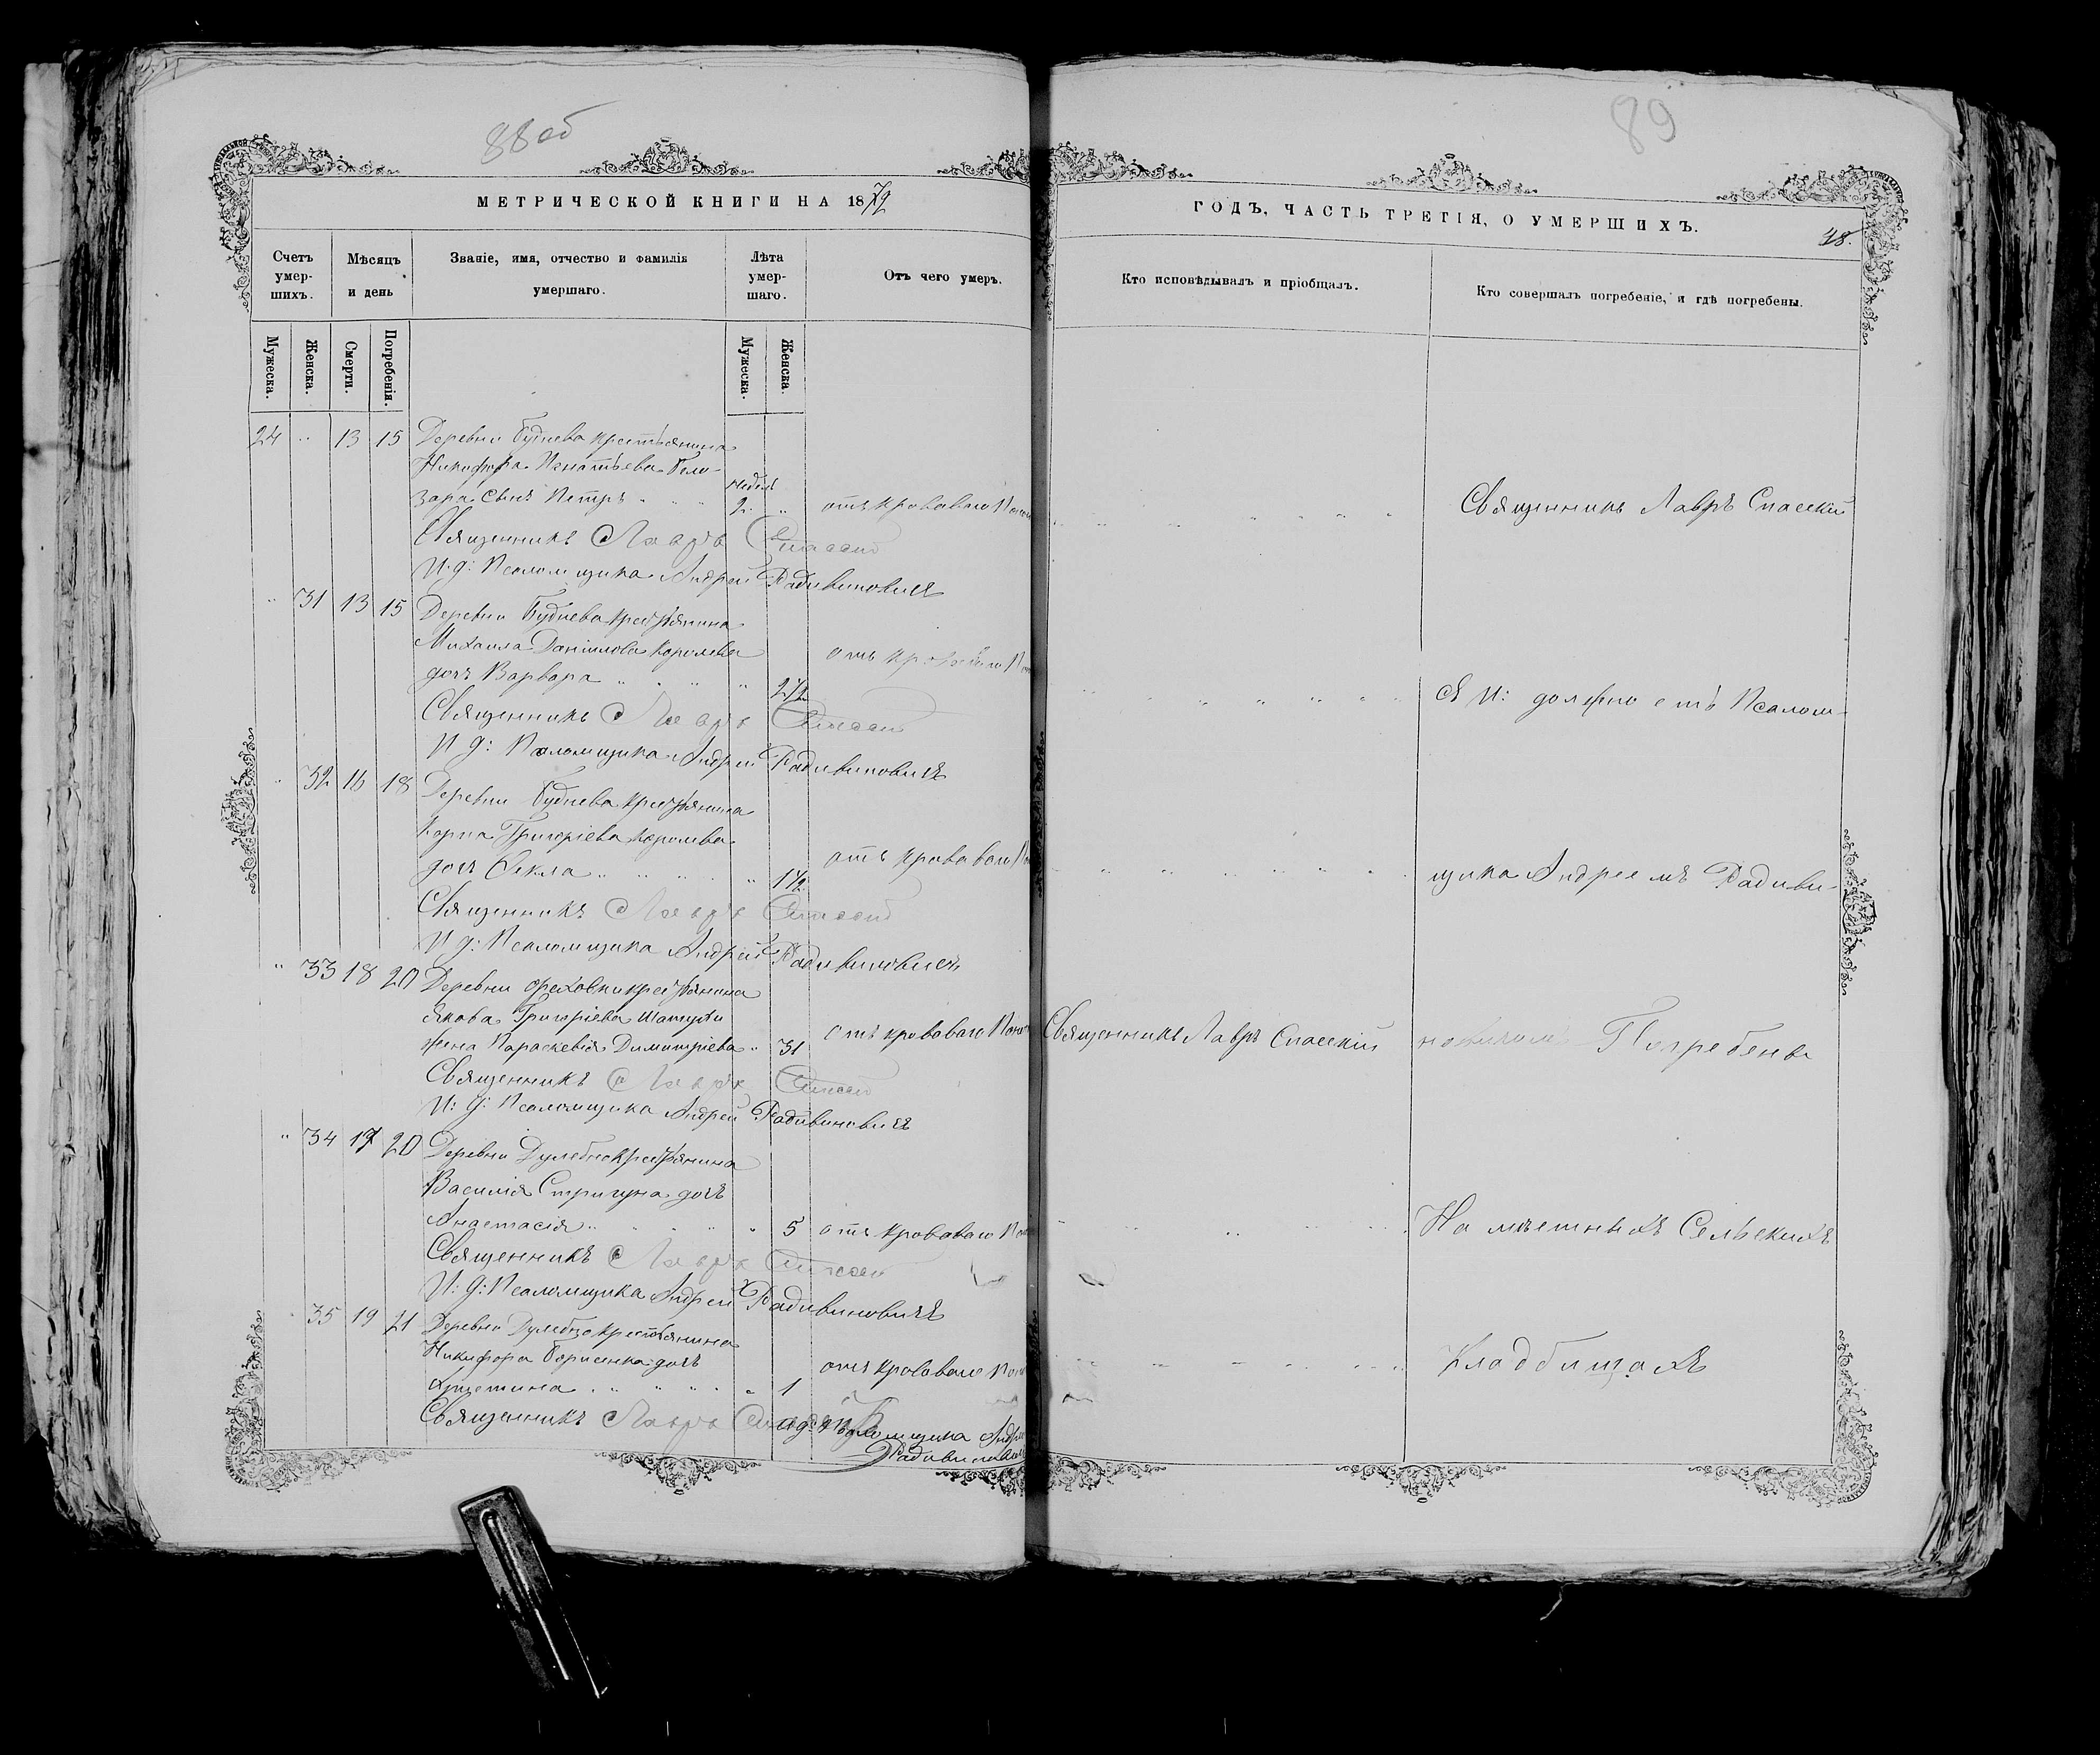 88 об
МЕТРИЧЕСКОЙ КНИГИ НА 1879
Счетъ умер-шихъ.
Мѣсяцъ и день
Званіе, имя, отчество и фамилія умершаго.
Лѣта умер-шаго.
Отъ чего умеръ.
Мужеска.
Женска.
Смерти.
Погребенія.
Мужеска.
Женска.
24 " 13 15 Деревни Буднева крестьянина
Никифора Игнатьева Бело-
зара сынъ Петръ недѣль 2 " отъ кроваваго
Священникъ Лавръ Спасскій
И. д: Псаломщика Андрей Радивиновичъ
" 31 13 15 Деревни Буднева крестьянина
Михаила Даніилова Королева
дочь Варвара " " " " 2 1/2 отъ кроваваго
Священникъ Лавръ Спасскій
И д: Псаломщика Андрей Радивиновичъ
" 32 16 18 Деревни Буднева крестьянина
Карпа Григоріева Королева
дочь Ѳекла " " " " 1 1/2 отъ кроваваго
Священникъ Лавръ Спасскій
И д: Псаломщика Андрей Радивиновичъ
" 33 18 20 Деревни Ореховки крестьянина
Якова Григоріева
жена Параскевія Димитріева " 31 отъ кроваваго
Священникъ Лавръ Спасскій
И: д: Псаломщика Андрей Радивиновичъ
" 34 17 20 Деревни Дулебно крестьянина
Василія Стригуна дочь
Анастасія " " " " 5 отъ кроваваго
Священникъ Лавръ Спасскій
И: д: Псаломщика Андрей Радивиновичъ
" 35 19 21 Деревни Дулебно крестьянина
Никифора Борисенка дочь
Христина " " " " 1 отъ кроваваго
Священникъ Лавръ Спасскій И д: Псаломщика Андрей
Радивиновичъ
89
ГОДЪ, ЧАСТЬ ТРЕТІЯ, О УМЕРШИХЪ.
48.
Кто исповѣдывалъ и пріобщалъ.
Кто совершалъ погребеніе, и гдѣ погребены.
Священникъ Лавръ Спасскій
съ И: должность Псалом-
щика Андреемъ Радиви-
Священникъ Лавръ Спасскій
новичомъ Погребены
На мѣстныхъ Сельскихъ
Кладбищахъ